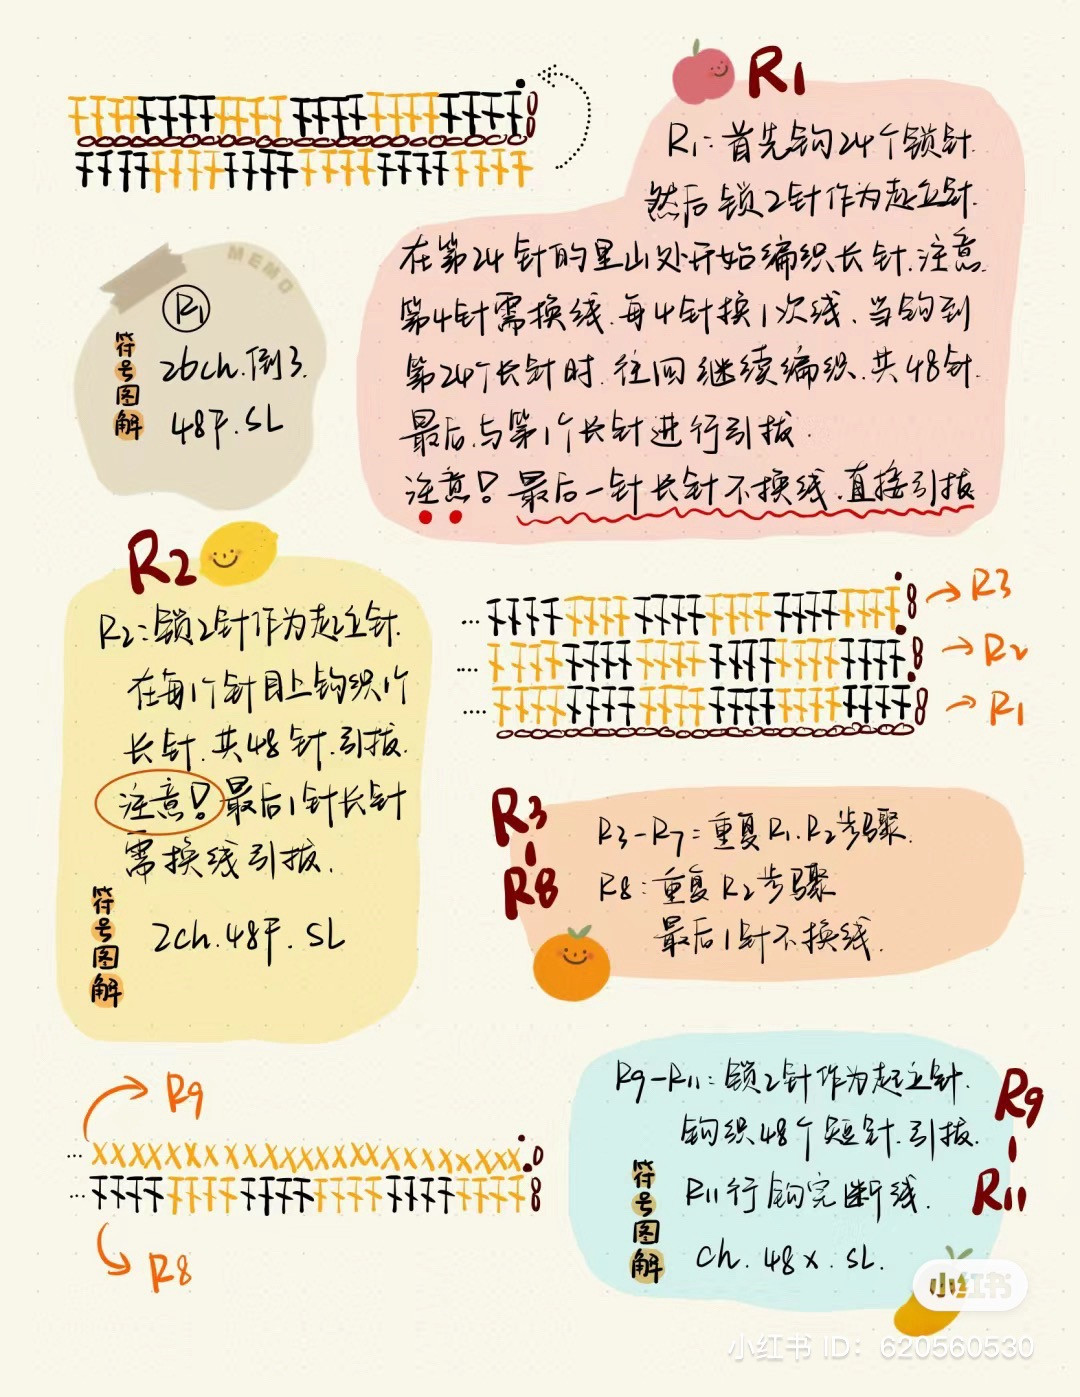 R1
R1：首先钩24个锁针.
然后锁2针作为起立针.
在第24针的里山处开始编织长针.注意
第4针需换线.每4针换1次线、当钩到
第24个长针时.往回继续编织.共48针.
最后.与第1个长针进行引拔.
注意！最后一针长针不换线.直接引拔
MEMO
R1
符号图解
26ch.倒3.
48F.SL
R2
R2：锁2针作为起立针.
在每1个针目上钩织1个
长针.共48针.引拔.
注意！最后1针长针
需换线引拔.
符号图解
2ch.48F.SL
R3
R2
R1
R3
R8
R3-R7：重复R1.R2步骤.
R8：重复R2步骤
最后1针不换线.
R9
R8
R9
R11
R9-R11：锁2针作为起立针.
钩织48个短针.引拔.
R11行钩完断线.
符号图解
ch.48x.SL.
小红书
小红书 ID：620560530